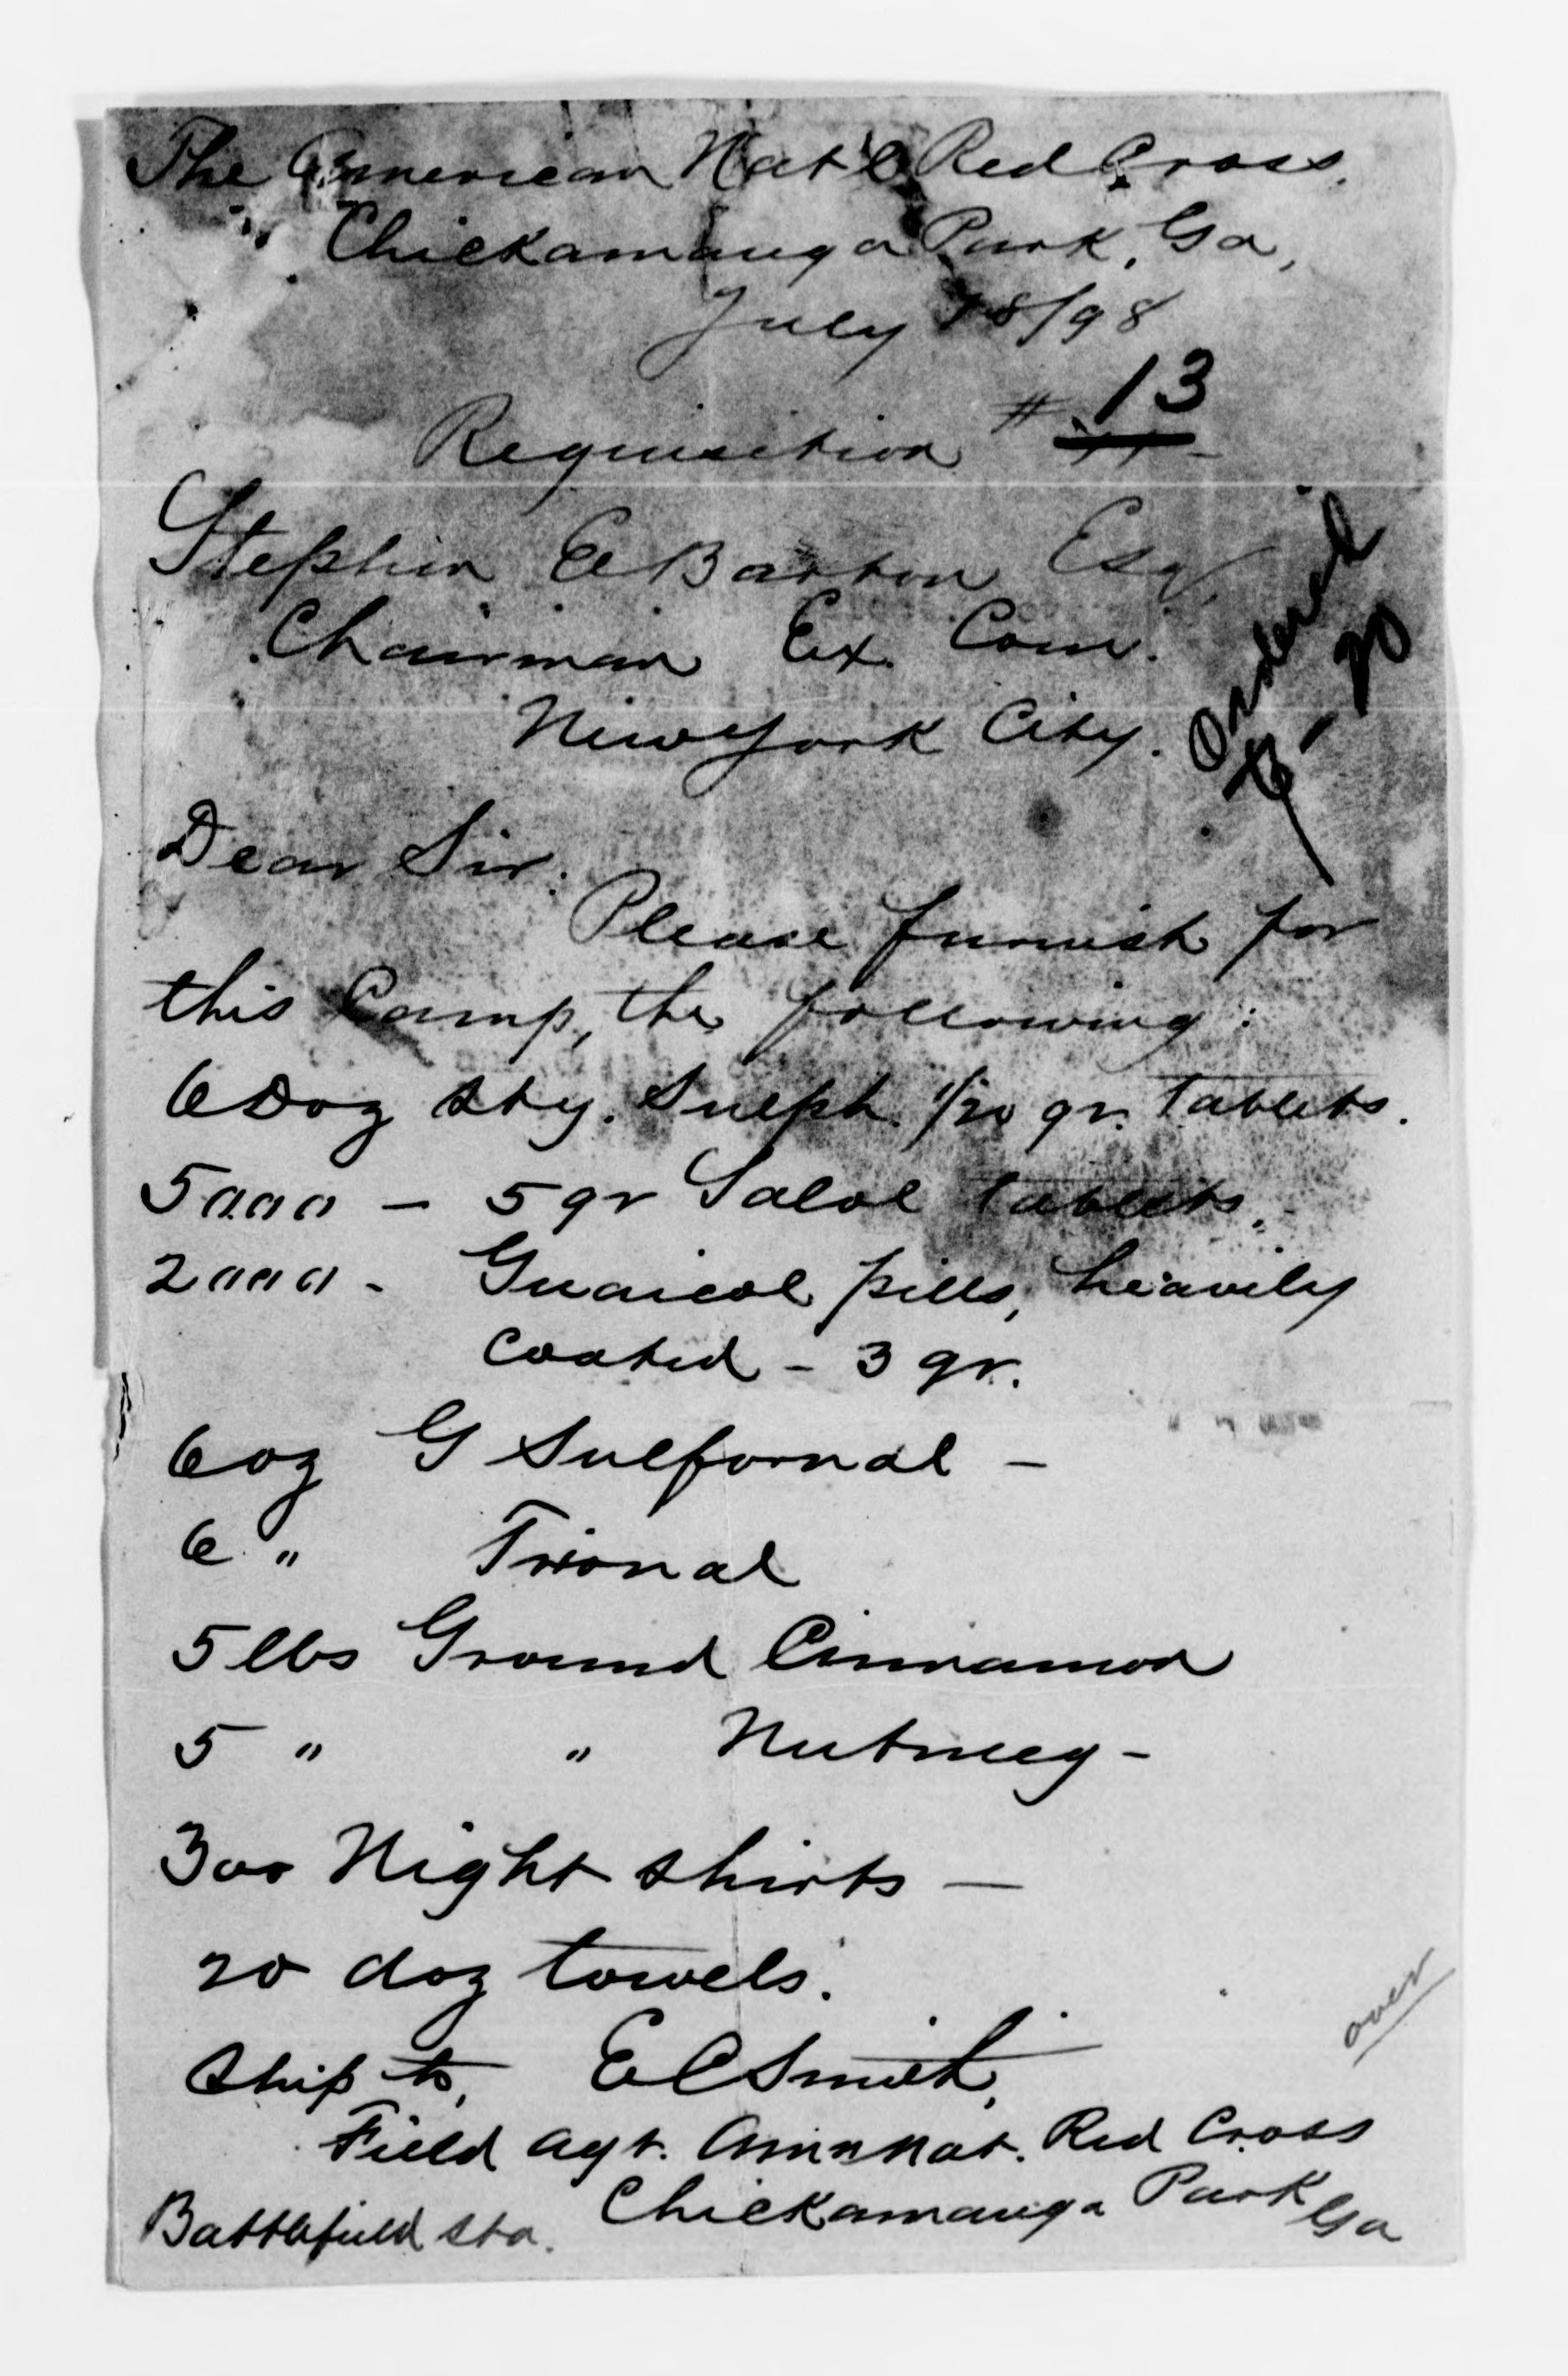 The American Nat'l Red Cross.
Chickamauga Park, Ga,
July 18/98
Requisition # 13
Stephen E Barton Esq,
Chairman Ex. Com.
New York City.
Ordered
20
Dear Sir:
Please furnish for
this Camp, the following:
6 Doz Sty. Sulph. 1/20 gr. Tablets.
5000 - 5 gr Salol Tablets.
2000 - Guaicol pills, heavily
coated - 3 gr.
6 oz G Sulfornal -
6 " Trional
5 lbs Ground Cinnamon
5 " " Nutmeg -
300 Night shirts —
20 doz towels.
over
Ship to, E C Smith,
Field Agt. Amn Nat. Red Cross
Chickamauga Park Ga
Battlefield Sta.